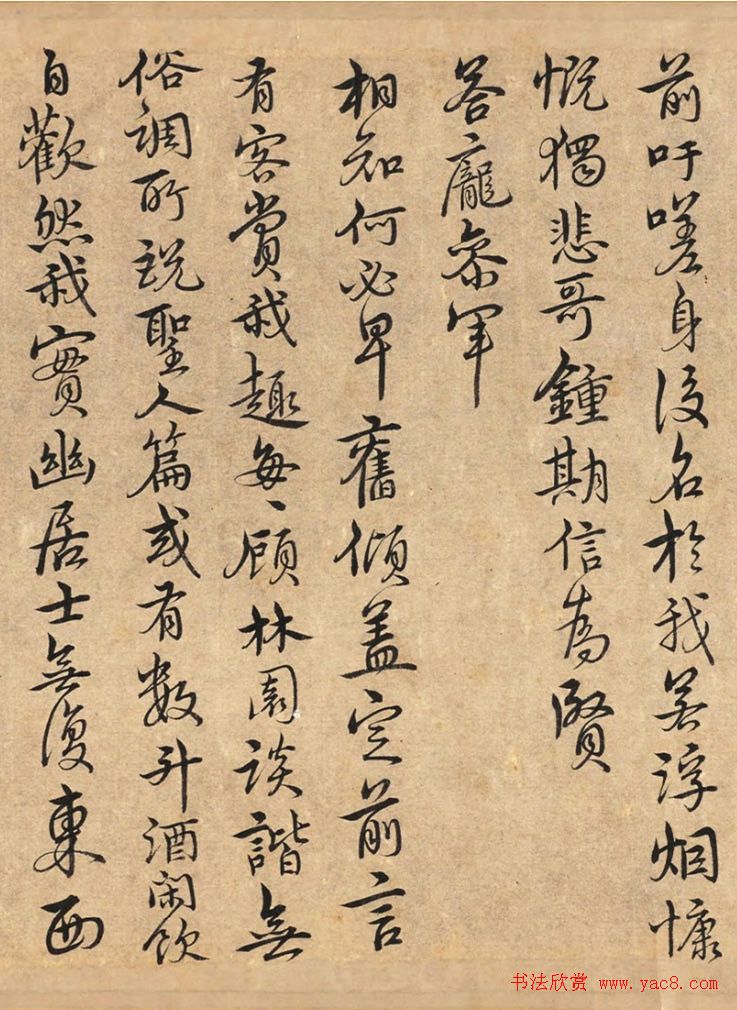 前吁嗟身後名於我若浮烟慷
慨獨悲哥鍾期信為賢
答龐叅軍
相知何必早舊傾盖定前言
有客賞我趣每〻顧林園談諧無
俗調所説聖人篇或有數升酒閑飲
自歡然我實幽居士無復東西
书法欣赏 www.yac8.com